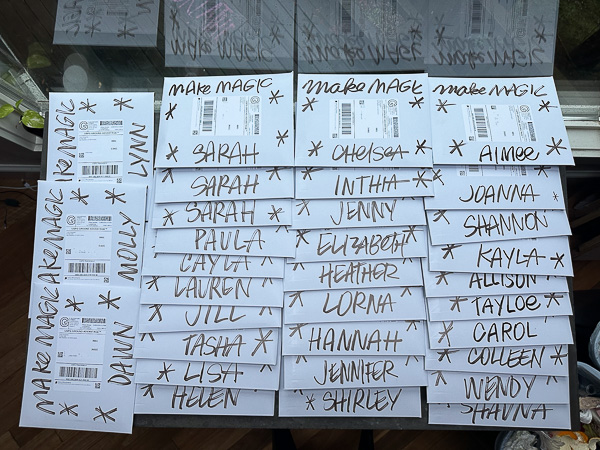 MAKE MAGIC
LYNN
MAKE MAGIC
MOLLY
MAKE MAGIC
DAWN
MAKE MAGIC
SARAH
SARAH
SARAH
PAULA
CAYLA
LAUREN
JILL
TASHA
LISA
HELEN
MAKE MAGIC
CHELSEA
INTHIA
JENNY
ELIZABETH
HEATHER
LORNA
HANNAH
JENNIFER
SHIRLEY
MAKE MAGIC
AIMEE
JOANNA
SHANNON
KAYLA
ALLISON
TAYLOE
CAROL
COLLEEN
WENDY
SHAVNA